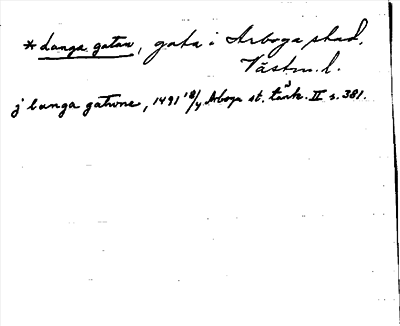 * Langa gatan, gata i Arboga stad,
Västm. l.
j langa gatwne, 1491 18/4 Arboga st. tänk. II s. 381.